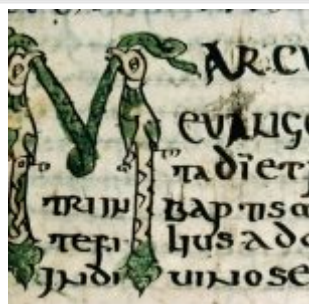 MARCU
EVANGE
TA DIET
TRIIN BAPTISA
TEFI LIUS ADO
INDI UINOSE